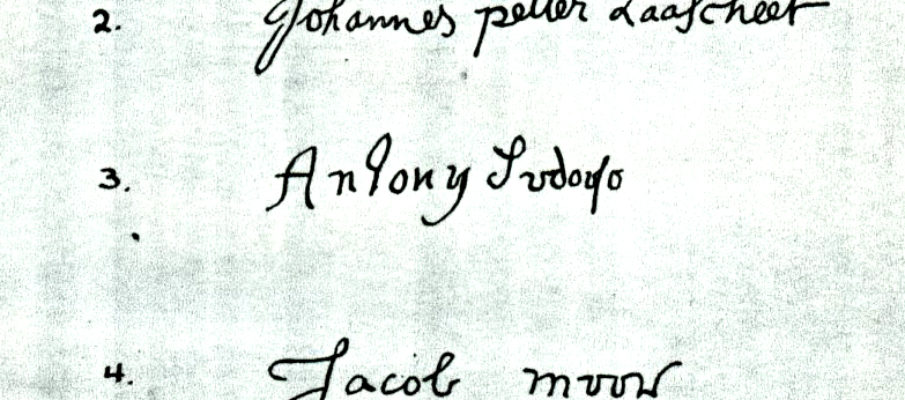 2. Johannes petter Laafcheet
3. Antony
4. Jacob moor